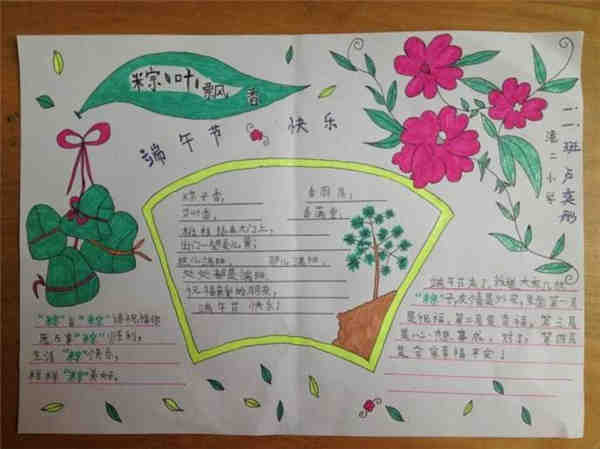 粽叶飘香
端午节快乐
二一班卢奕彤
港二小学
粽子香, 香厨房;
艾叶香, 香满堂;
桃枝插在大门上,
出门一望麦儿黄;
这儿端阳, 那儿端阳,
处处都是端阳.
祝福亲爱的朋友,
端午节 快乐!
"粽"里"粽"
愿万事"粽"胜利,
生活"粽"快乐,
样样"粽"美好.
端午节来了,我想大家
"粽"子,
是祝福,第二层是幸福,第三层
是心想事成,对了,第四层
是全家幸福平安!